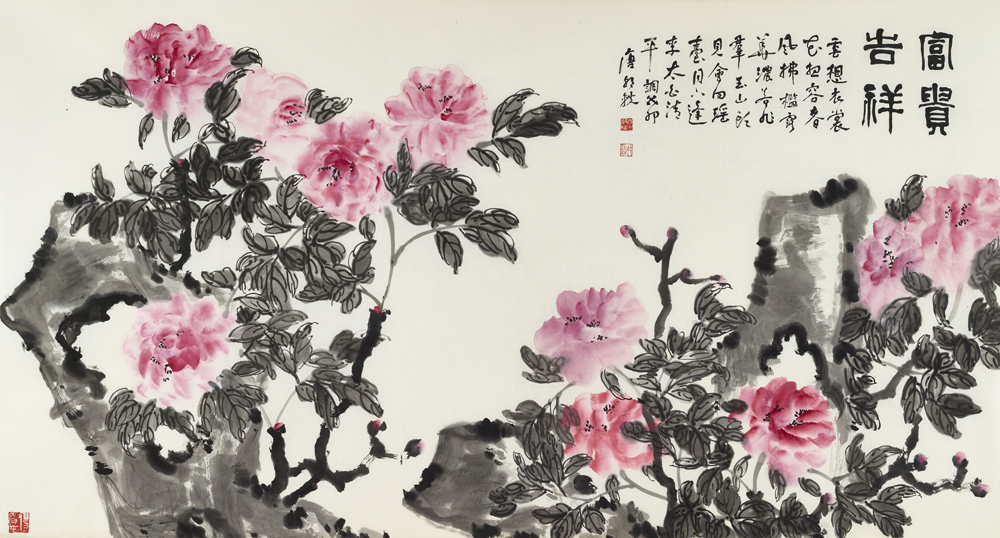 富貴
吉祥
雲想衣裳
花想容春
風拂檻露
華濃若非
羣玉山頭
見會向瑤
臺月下逢
李太白清
平調
唐